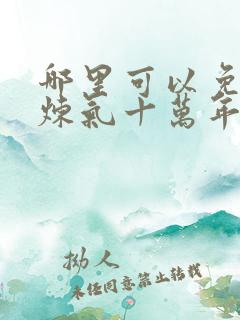 哪里可以免
炼氣十萬年
拗人
未经同意禁止转载